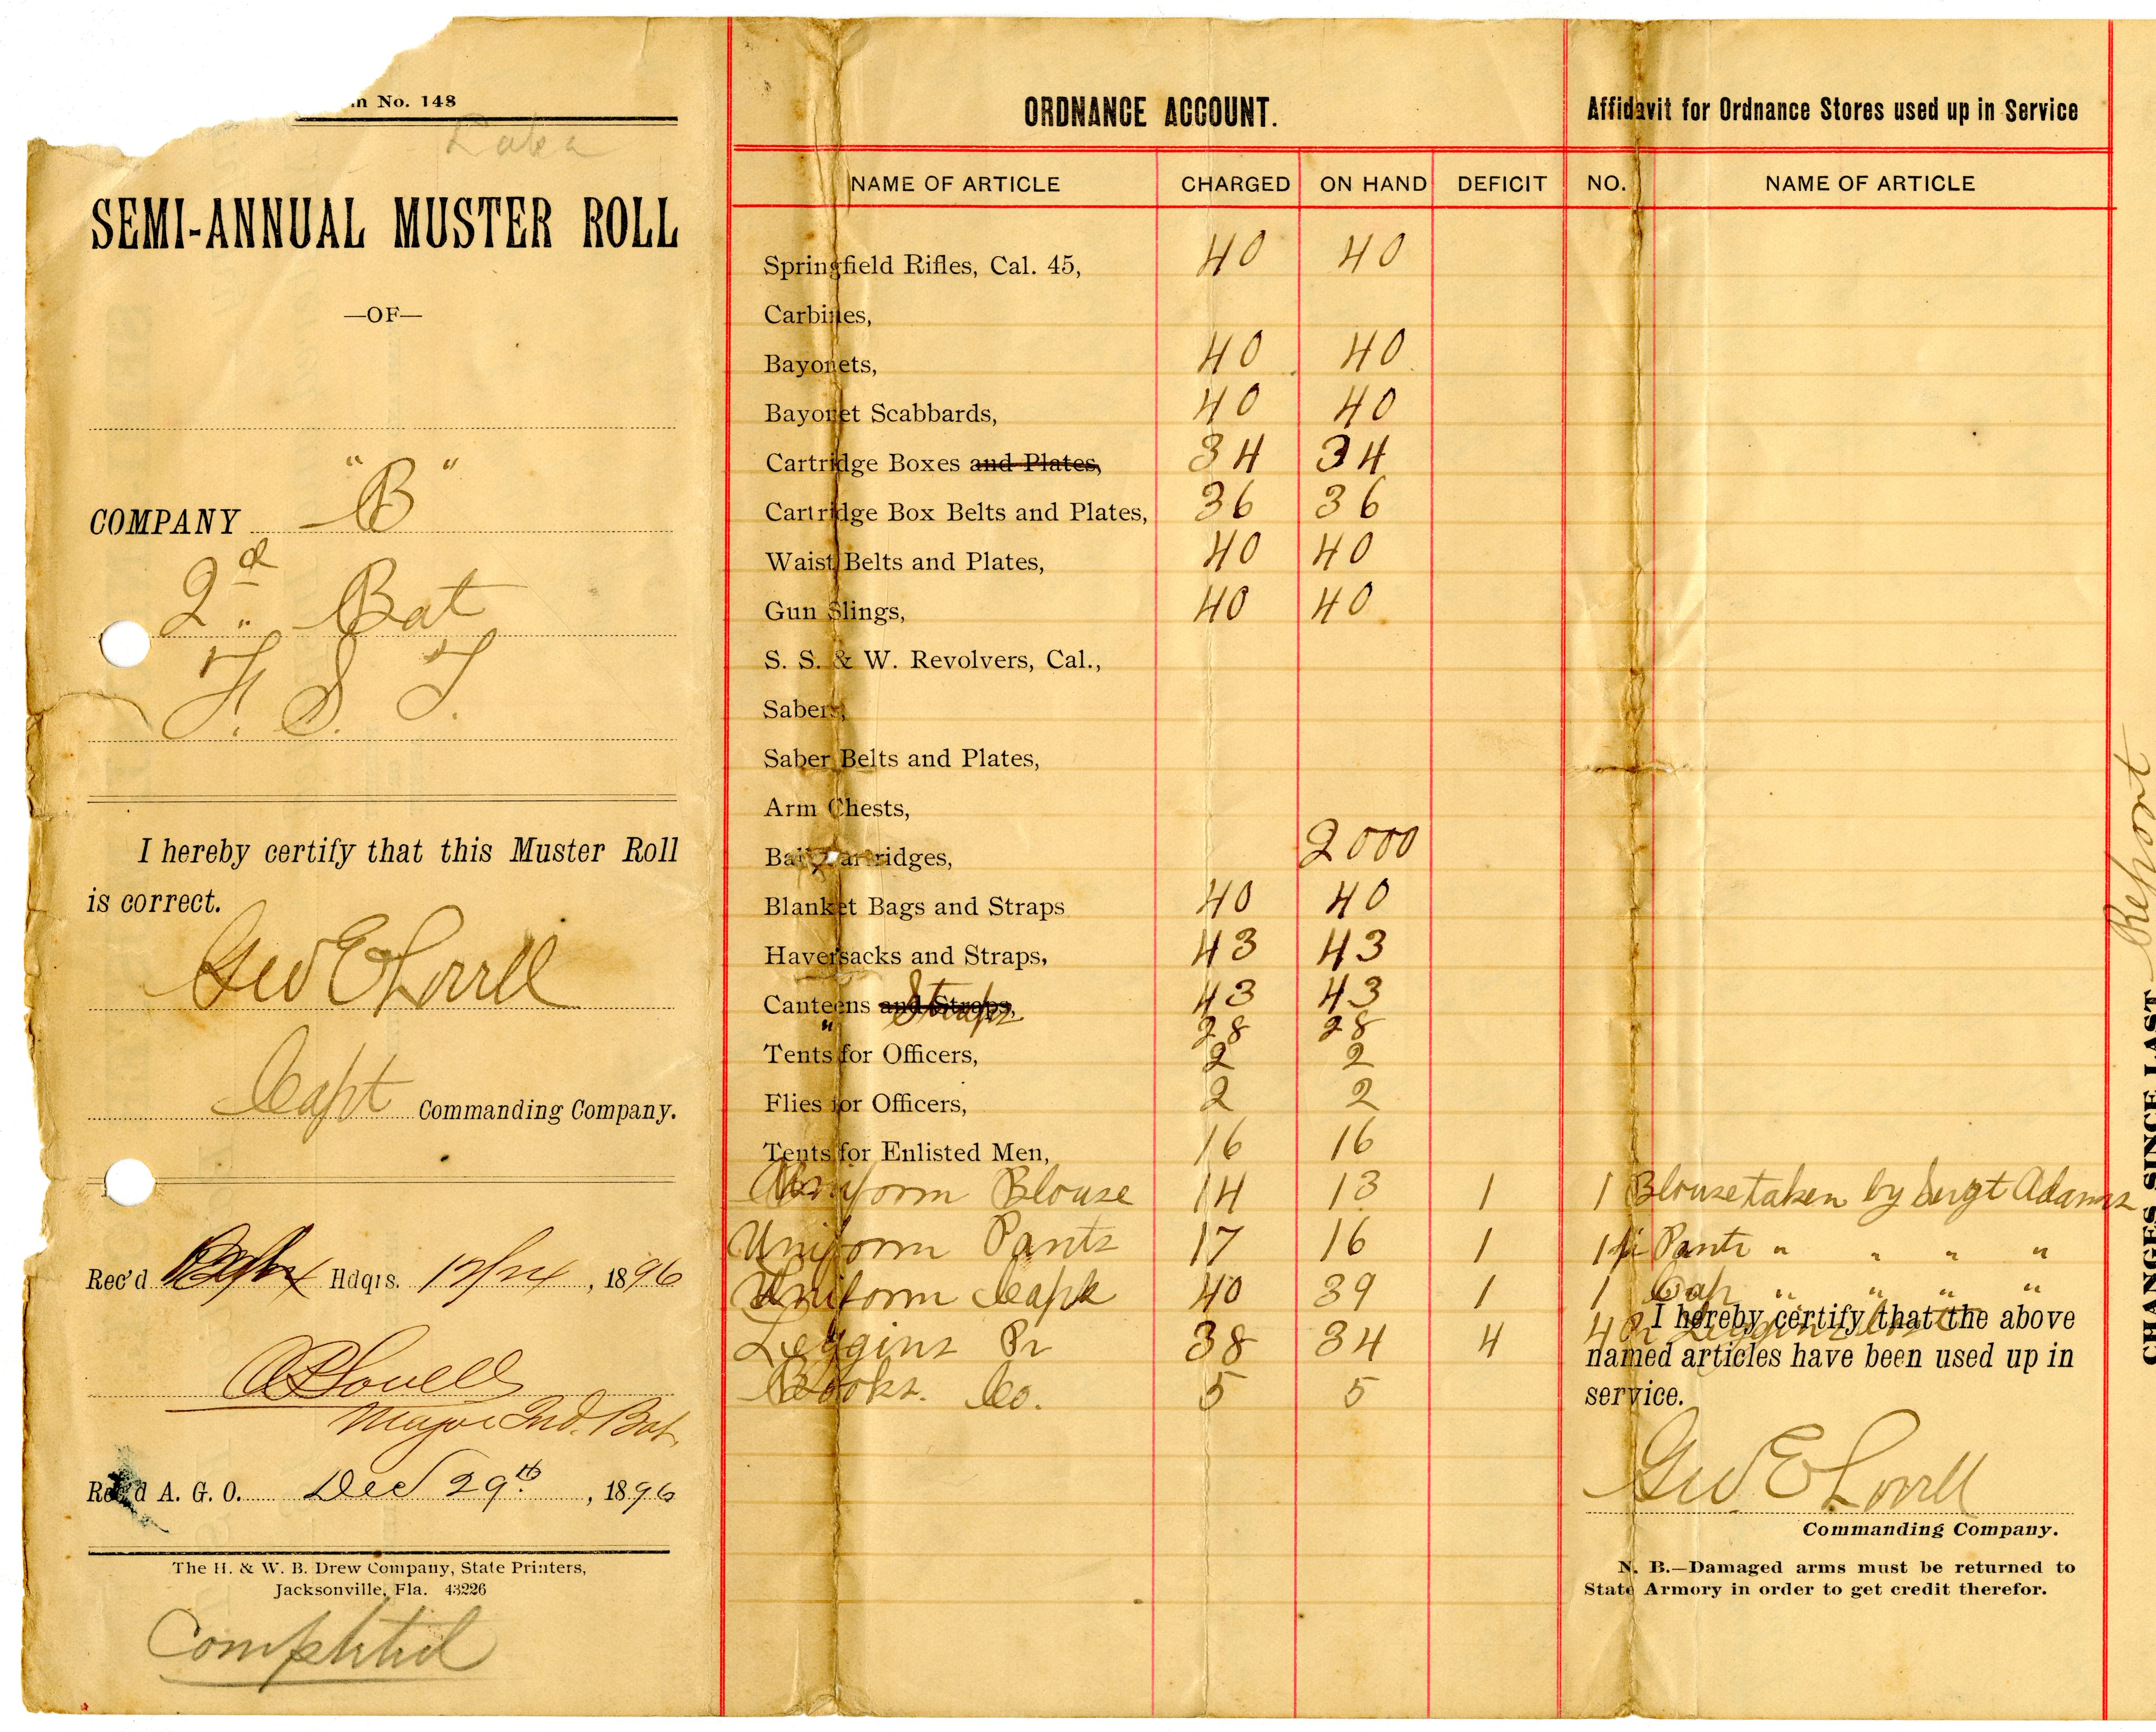 No. 148
SEMI-ANNUAL MUSTER ROLL
—OF—
COMPANY "B"
2d Bat
F. S. T.
I hereby certify that this Muster Roll
is correct.
Geo E Lovell
Capt Commanding Company.
Rec'd Hdqrs. 12/24, 1896
Major 2nd. Bat.
Rec'd A. G. O. Dec 29th, 1896
The H. & W. B. Drew Company, State Printers,
Jacksonville, Fla. 43226
Completed
ORDNANCE ACCOUNT.
NAME OF ARTICLE CHARGED ON HAND DEFICIT
Springfield Rifles, Cal. 45, 40 40
Carbines,
Bayonets, 40 40
Bayonet Scabbards, 40 40
Cartridge Boxes and Plates, 34 34
Cartridge Box Belts and Plates, 36 36
Waist Belts and Plates, 40 40
Gun Slings, 40 40
S. S. & W. Revolvers, Cal.,
Sabers,
Saber Belts and Plates,
Arm Chests,
Ball Cartridges, 2000
Blanket Bags and Straps 40 40
Haversacks and Straps, 43 43
Canteens and Straps, 43 43
" Straps 28 28
Tents for Officers, 2 2
Flies for Officers, 2 2
Tents for Enlisted Men, 16 16
Uniform Blouse 14 13 1
Uniform Pants 17 16 1
Uniform Caps 40 39 1
Leggins Pr 38 34 4
Books. Co. 5 5
Affidavit for Ordnance Stores used up in Service
NO. NAME OF ARTICLE
1 Blouse taken by Sergt Adams
1 Pants " " " "
1 Cap " " " "
4 Pr Leggins
I hereby certify that the above
named articles have been used up in
service.
Geo. E Lovell
Commanding Company.
N. B.—Damaged arms must be returned to
State Armory in order to get credit therefor.
CHANGES SINCE LAST Report